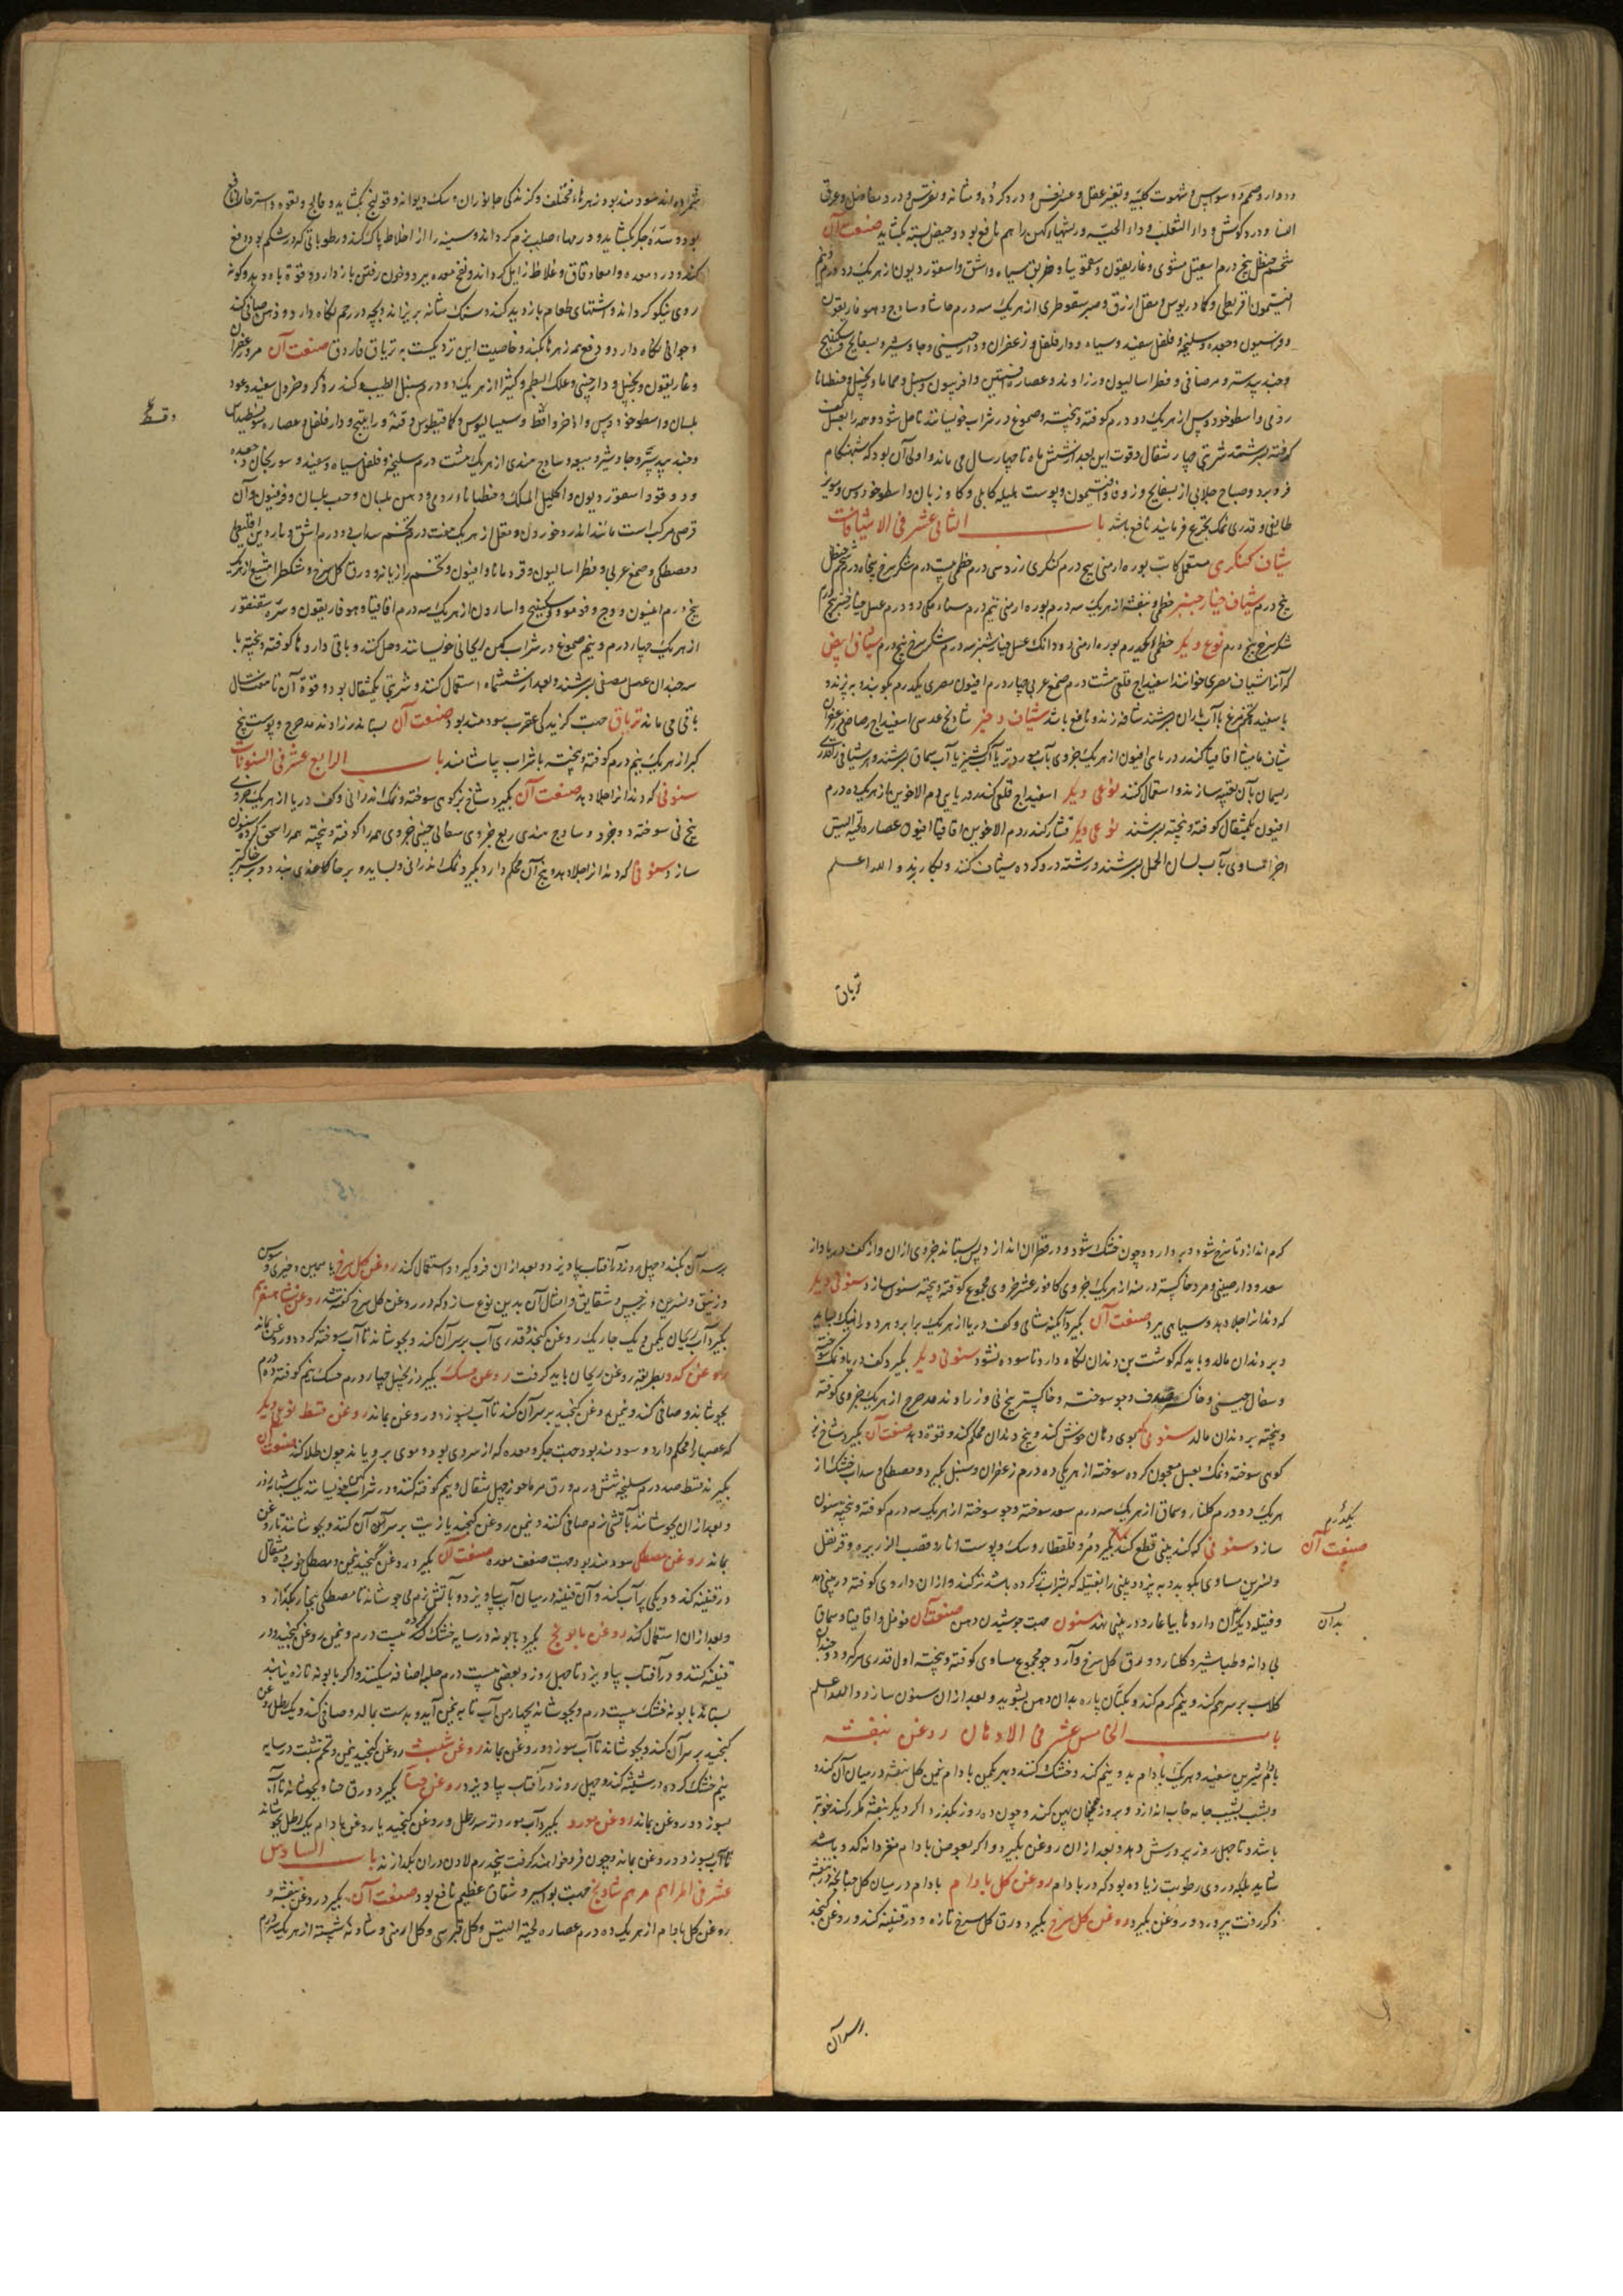 و دوار و صمم و وسواس و شهوت کلبیه و تغیر عقل و عسر نفس و درد کرده و مثانه و نقرس و درد مفاصل و عرق
النسا و درد کوش و داء الثعلب و داء الحیه و ربتهاء کهن را هم نافع بود و حیض بسته بکشاید صنعت آن
شحم حنظل پنج درم اسقیل مشوی و غاریقون و سقمونیا و خربق سیاه و اشق و اسقوردیون از هر یک دو درم و نیم
افتیمون اقریطی و کمادریوس و مقل ازرق و صبر سقوطری از هر یک سه درم حاشا و ساذج و هوفاریقون
و فراسیون و جعده و سلیخه و فلفل سفید و سیاه و دارفلفل و زعفران و دارچینی و جاوشیر و بسفایج و سکبینج
و جندبیدستر و مر صافی و فطراسالیون و زراوند و عصاره افسنتین و افربیون و سنبل و حماما و زنجبیل و جنطیانا
رومی و اسطوخودوس از هر یک دو درم کوفته و بیخته و صموغ در شراب خیسانند تا حل شود و همه را بعسل کف
کرفته بسرشند شربتی چهار مثقال و قوت این بعد از شش ماه تا چهار سال می ماند و اولی آن بود که شبهنکام
فرو برد و صباح جلابی از بسفایج و زوفا و افتیمون و پوست هلیله کابلی و کاو زبان و اسطوخودوس و مویز
طایفی و قدری نمک تجرع فرمایند نافع باشد باب الثانی عشر فی الاشیافات
شیاف کنکری مقل کابت بوره ارمنی پنج درم کنکری زرد سی درم خطمی بیست درم شکر سرخ پنجاه درم شحم حنظل
پنج درم شیاف خیار چنبر خطمی و بنفشه از هر یک سه درم بوره ارمنی نیم درم سناء مکی دو درم عسل خیار چنبر پنج درم
شکر سرخ پنج درم نوع دیکر خطمی یکدرم بوره ارمنی دو دانک عسل خیار شنبر سه درم شکر سرخ پنج درم شیاف ابیض
که آنرا شیاف مصری خوانند اسفیداج قلعی هشت درم صمغ عربی چهار درم افیون مصری یکدرم بکوبند و به پزند و
با سفیده تخم مرغ یا آب باران بسرشند شافه زنند و نافع باشد شیاف دیز شادنج عدسی اسفیداج رصاصی زعفران
شیاف مامیثا اقاقیا کندر در ماسی افیون از هر یک جزوی بآب مورد تر یا آب کشنیز یا آب سماق بسرشند و هر شیافی را قدری
ریسمان بآن تعبیه سازند و استعمال کنند نوعی دیکر اسفیداج قلعی کندر دریایی دم الاخوین از هر یک ده درم
افیون یکمثقال کوفته و بیخته بسرشند نوعی دیکر قشار کندر دم الاخوین اقاقیا افیون عصاره لحیة التیس
اجزا مساوی بآب لسان الحمل بسرشند و رشته درو کرده شیاف کنند و بکار برند و الله اعلم
تریاق
شمرده اند سودمند بود زهرهاء مختلف و کزندکی جانوران و سک دیوانه و قولنج بکشاید و فالج و لقوه و استرخا را نافع
بود و سدّه جکر بکشاید و ورمهاء صلب نرم کرداند و سینه را از اخلاط پاک کند و رطوباتی که در شکم بود دفع
کند و درد معده و امعا دقاق و غلاظ زایل کرداند و نفخ معده ببرد و خون رفتن باز دارد و قوة باه دهد و کونه
روی نیکو کرداند و اشتهای طعام بازدید کند و سنک مثانه بریزاند و بچه در رحم نکاه دارد و ذهن صافی کند
و جوانی نکاه دارد و دفع همه زهرها بکند و خاصیت این نزدیکست به تریاق فاروق صنعت آن مر زعفران
و غاریقون و زنجبیل و دارچینی و علک البطم و کثیرا از هر یک دو درم سنبل الطیب و کندر ذکر و خردل سفید و عود
بلسان و اسطوخودوس و اذخر و قسط و سیسالیوس و کمافیطوس و قنه و راتینج و دارفلفل و عصاره هیوفسطیداس
و قسط
و جندبیدستر و جاوشیر و میعه و ساذج هندی از هر یک هشت درم سلیخه و فلفل سیاه و سفید و سورنجان و جعده
و دوقو و اسقوردیون و اکلیل الملک و جنطیانا رومی و دهن بلسان و حب بلسان و قرفیون و آن
قرصی مرکب است مانند اندروخورون و مقل از هر یک هفت درم تخم سداب دو درم اشق و ناردین اقلیطی
و مصطکی و صمغ عربی و فطراسالیون و قردمانا و افیون و تخم رازیانه و ورق کل سرخ و مشکطرامشیع از هر یک
پنج درم افیون و وج و فو و مو و سکبینج و اسارون از هر یک سه درم اقاقیا و هوفاریقون و سره سقنقور
از هر یک چهار درم و نیم صموغ در شراب کهن ریحانی خیسانند و حل کنند و باقی داروها کوفته و بیخته با
سه چندان عسل مصفی بسرشند و بعد از ششماه استعمال کنند و شربتی یکمثقال بود و قوة آن تا هفت سال
باقی می ماند تریاق جهت کزندکی عقرب سودمند بود صنعت آن بستانند زراوند مدحرج و پوست بیخ
کبر از هر یک نیم درم کوفته و بیخته با شراب بیاشامند باب الرابع عشر فی السنونات
سنونی که دندانرا جلا دهد صنعت آن بکیرد شاخ بز کوهی سوخته و نمک اندرانی و کف دریا از هر یک جزوی
بیخ نی سوخته دو جزو و ساذج هندی ربع جزوی سفال چینی جزوی همه را کوفته و بیخته همه را سحق کرده سنون
سازد سنونی که دندانرا جلا دهد و بیخ آن محکم دارد بکیرد نمک اندرانی و بساید و بر جا کاغذی بندد و بر خاکستر
کرم اندازد تا سرخ شود و بردارد و چون خشک شود در قطران اندازد پس بستاند جزوی ازان و از کف دریا و از
سعد و دارچینی و مر و خاکستر درمنه از هر یک جزوی کافور عشر جزوی مجموع کوفته و بیخته سنون سازد سنونی دیکر
که دندانرا جلا دهد و سیاهی ببرد صنعت آن بکیرد آبکینه شامی و کف دریا از هر یک برابر و هر دو را نیک بساید
و بر دندان مالد و باید که کوشت بن دندان نکاه دارد تا سوده نشود سنونی دیکر بکیرد کف دریا و نمک سوخته
و سفال چینی و خاکستر صدف و جو سوخته و خاکستر بیخ نی و زراوند مدحرج از هر یک جزوی کوفته
و بیخته بر دندان مالد سنونی که بوی دهان خوش کند و بیخ دندان محکم کند و قوة دهد صنعت آن بکیرد شاخ بز
کوهی سوخته و نمک بعسل معجون کرده سوخته از هر یکی ده درم زعفران و سنبل بکیرد و مصطکی و سداب خشک از
هر یک دو درم کلنار و سماق از هر یک سه درم سعد سوخته و جو سوخته از هر یک سه درم کوفته و بیخته سنون
یکدرم
سازد سنونی که کند بینی قطع کند بکیرد مر و قلقطار و سک و پوست انار و قصب الذریره و قرنفل
صنعت آن
و نسرین مساوی بکوبد و به پزد و بینی را بفتیله که بشراب تر کرده باشد تر کند و ازان داروی کوفته در بینی دمد
و فتیله دیکر بآن داروها بیاغارد و در بینی نهد سنون جهت جوشیدن دهن صنعت آن فوفل و اقاقیا و سماق
بدان
بی دانه و طباشیر و کلنار و ورق کل سرخ و آرد جو مجموع مساوی کوفته و بیخته اول قدری سرکه و دو چندان
کلاب بر سرهم کند و نیم کرم کند و بکتان پاره بدان دهن بشوید و بعد ازان سنون سازد و الله اعلم
باب الخامس عشر فی الادهان روغن بنفشه
بادام شیرین سفید و هر یک بادام بدو نیم کند و خشک کنند و بهر یکمن بادام نیمن کل بنفشه در میان آن کنند و
و بشب بشیب جامه خاب اندازد و بروز همچنان پهن کند و چون ده روز بکذرد اکر دیکر بنفشه مکرر کند خوبتر
باشد و تا چهل روز پرورش دهد و بعد ازان روغن بکیرد و اکر بعوض بادام مغز دانه کدو باشد
شاید بلکه در وی رطوبت زیاده بود که در بادام روغن کل بادام بادام در میان کل چنانچه در بنفشه
ذکر رفت بپرورد و روغن بکیرد روغن کل سرخ بکیرد ورق کل سرخ تازه و در قنینه کند و روغن کنجد
برسر آن
بر سر آن بکند و چهل روز در آفتاب بیاویزد و بعد ازان فرو کیرد و استعمال کند روغن کل سرخ یاسمین و خیری و سوسن
و زنبق و نسرین و نرجس و شقایق و امثال آن بدین نوع سازد که در روغن کل سرخ کفته شد روغن شاهسفرم
بکیرد آب ریحان یکمن و یک چاریک روغن کنجد و قدری آب بر سر آن کند و بجوشاند تا آب سوخته کردد و روغن بماند
روغن کدو بطریقه روغن ریحان باید کرفت روغن مسک بکیرد زنجبیل چهار درم مسک نیم کوفته ده درم
بجوشاند و صافی کند و نیمن روغن کنجد بر سر آن کند تا آب بسوزد و روغن بماند روغن قسط نوعی دیکر
که عصب را محکم دارد و سودمند بود جهت جکر و معده که از سردی بود و موی برویاند چون طلا کنند صنعت آن
بکیرند قسط صد درم سلیخه شش درم ورق مرماحوز چهل مثقال و نیم کوفته کنند و در شراب کهن خیسانند یک شبانه روز
و بعد ازان بجوشانند بآتش نرم صافی کنند و نیمن روغن کنجد یا زیت بر سر آن کنند و بجوشانند تا روغن
بماند روغن مصطکی سودمند بود جهت ضعف معده صنعت آن بکیرد روغن کنجد نیمن و مصطکی خوب ده مثقال
در قنینه کند و دیکی پر آب کند و آن قنینه در میان آب بیاویزد و بآتش نرم می جوشاند تا مصطکی بتمام بکدازد
و بعد ازان استعمال کند روغن بابونج بکیرد بابونه در سایه خشک کرده بیست درم و نیمن روغن کنجد در
قنینه کنند و در آفتاب بیاویزد تا چهل روز و بعضی بیست درم حلبه اضافه میکنند و اکر بابونه تازه نیابند
بستانند بابونه خشک بیست درم و بجوشاند بچهار من آب تا به نیمن آید و بدست بمالد و صافی کند و یک رطل روغن
کنجد بر سر آن کند و بجوشاند تا آب بسوزد و روغن بماند روغن شبت روغن کنجد نیمن و تخم شبت در سایه
نیم خشک کرده در شیشه کند و چهل روز در آفتاب بیاویزد روغن حنا بکیرد ورق حنا و بجوشاند تا آب
بسوزد و روغن بماند روغن مورد بکیرد آب مورد تر سه رطل و روغن کنجد یا روغن بادام یک رطل بجوشاند
تا آب بسوزد و روغن بماند و چون فرو خواهند کرفت پنجدرم لادن دران بکدازند باب السادس
عشر فی المراهم مرهم شادنج جهت بواسیر و شقاق عظیم نافع بود صنعت آن بکیرد روغن بنفشه و
روغن کل بادام از هر یک ده درم عصاره لحیة التیس و کل قبرسی و کل ارمنی و شادنه شسته از هر یک سه درم